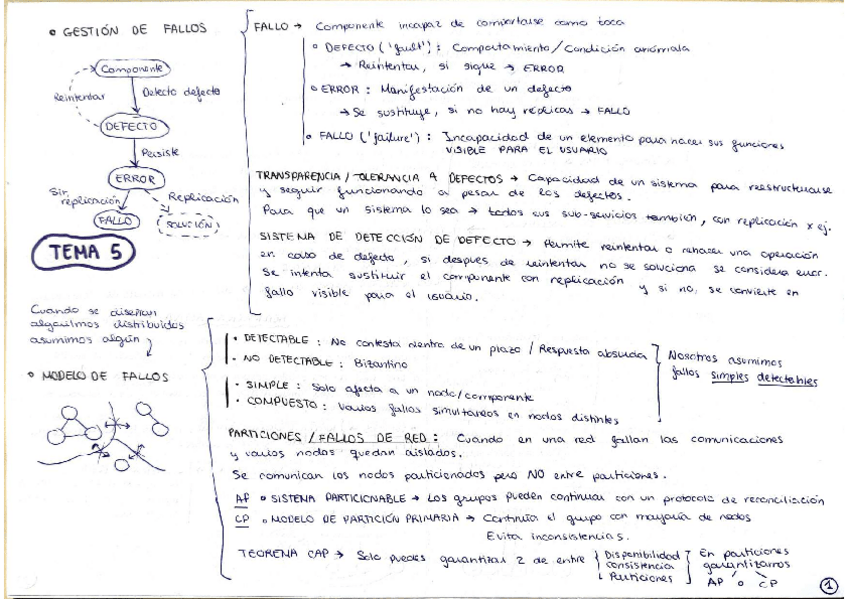 • GESTIÓN DE FALLOS
Componente
Reintentar
Detecto defecto
DEFECTO
Persiste
ERROR
Sin replicación
Replicación
FALLO
SOLUCIÓN
TEMA 5
FALLO → Componente incapaz de comportarse como toca
• DEFECTO ('fault'): Comportamiento/Condición anómala
→ Reintentar, si sigue → ERROR
• ERROR: Manifestación de un defecto
→ Se sustituye, si no hay réplicas → FALLO
• FALLO ('failure'): Incapacidad de un elemento para hacer sus funciones
VISIBLE PARA EL USUARIO
TRANSPARENCIA/TOLERANCIA A DEFECTOS → Capacidad de un sistema para reestructurarse
y seguir funcionando a pesar de los defectos.
Para que un sistema lo sea → todos sus sub-servicios también, con replicación x ej.
SISTEMA DE DETECCIÓN DE DEFECTO → Permite reintentar o rehacer una operación
en caso de defecto, si después de reintentar no se soluciona se considera error.
Se intenta sustituir el componente con replicación y si no, se convierte en
fallo visible para el usuario.
Cuando se diseñan
algoritmos distribuidos
asumimos algún
• MODELO DE FALLOS
• DETECTABLE: No contesta dentro de un plazo / Respuesta absurda
• NO DETECTABLE: Bizantino
• SIMPLE: Solo afecta a un nodo/componente
• COMPUESTO: Varios fallos simultáneos en nodos distintos
Nosotros asumimos
fallos simples detectables
PARTICIONES/FALLOS DE RED: Cuando en una red fallan las comunicaciones
y varios nodos quedan aislados.
Se comunican los nodos particionados pero NO entre particiones.
AP • SISTEMA PARTICIONABLE → Los grupos pueden continuar con un protocolo de reconciliación
CP • MODELO DE PARTICIÓN PRIMARIA → Continúa el grupo con mayoría de nodos
Evita inconsistencias.
TEOREMA CAP → Solo puedes garantizar 2 de entre
Disponibilidad
consistencia
Particiones
En particiones
garantizamos
AP o CP
1